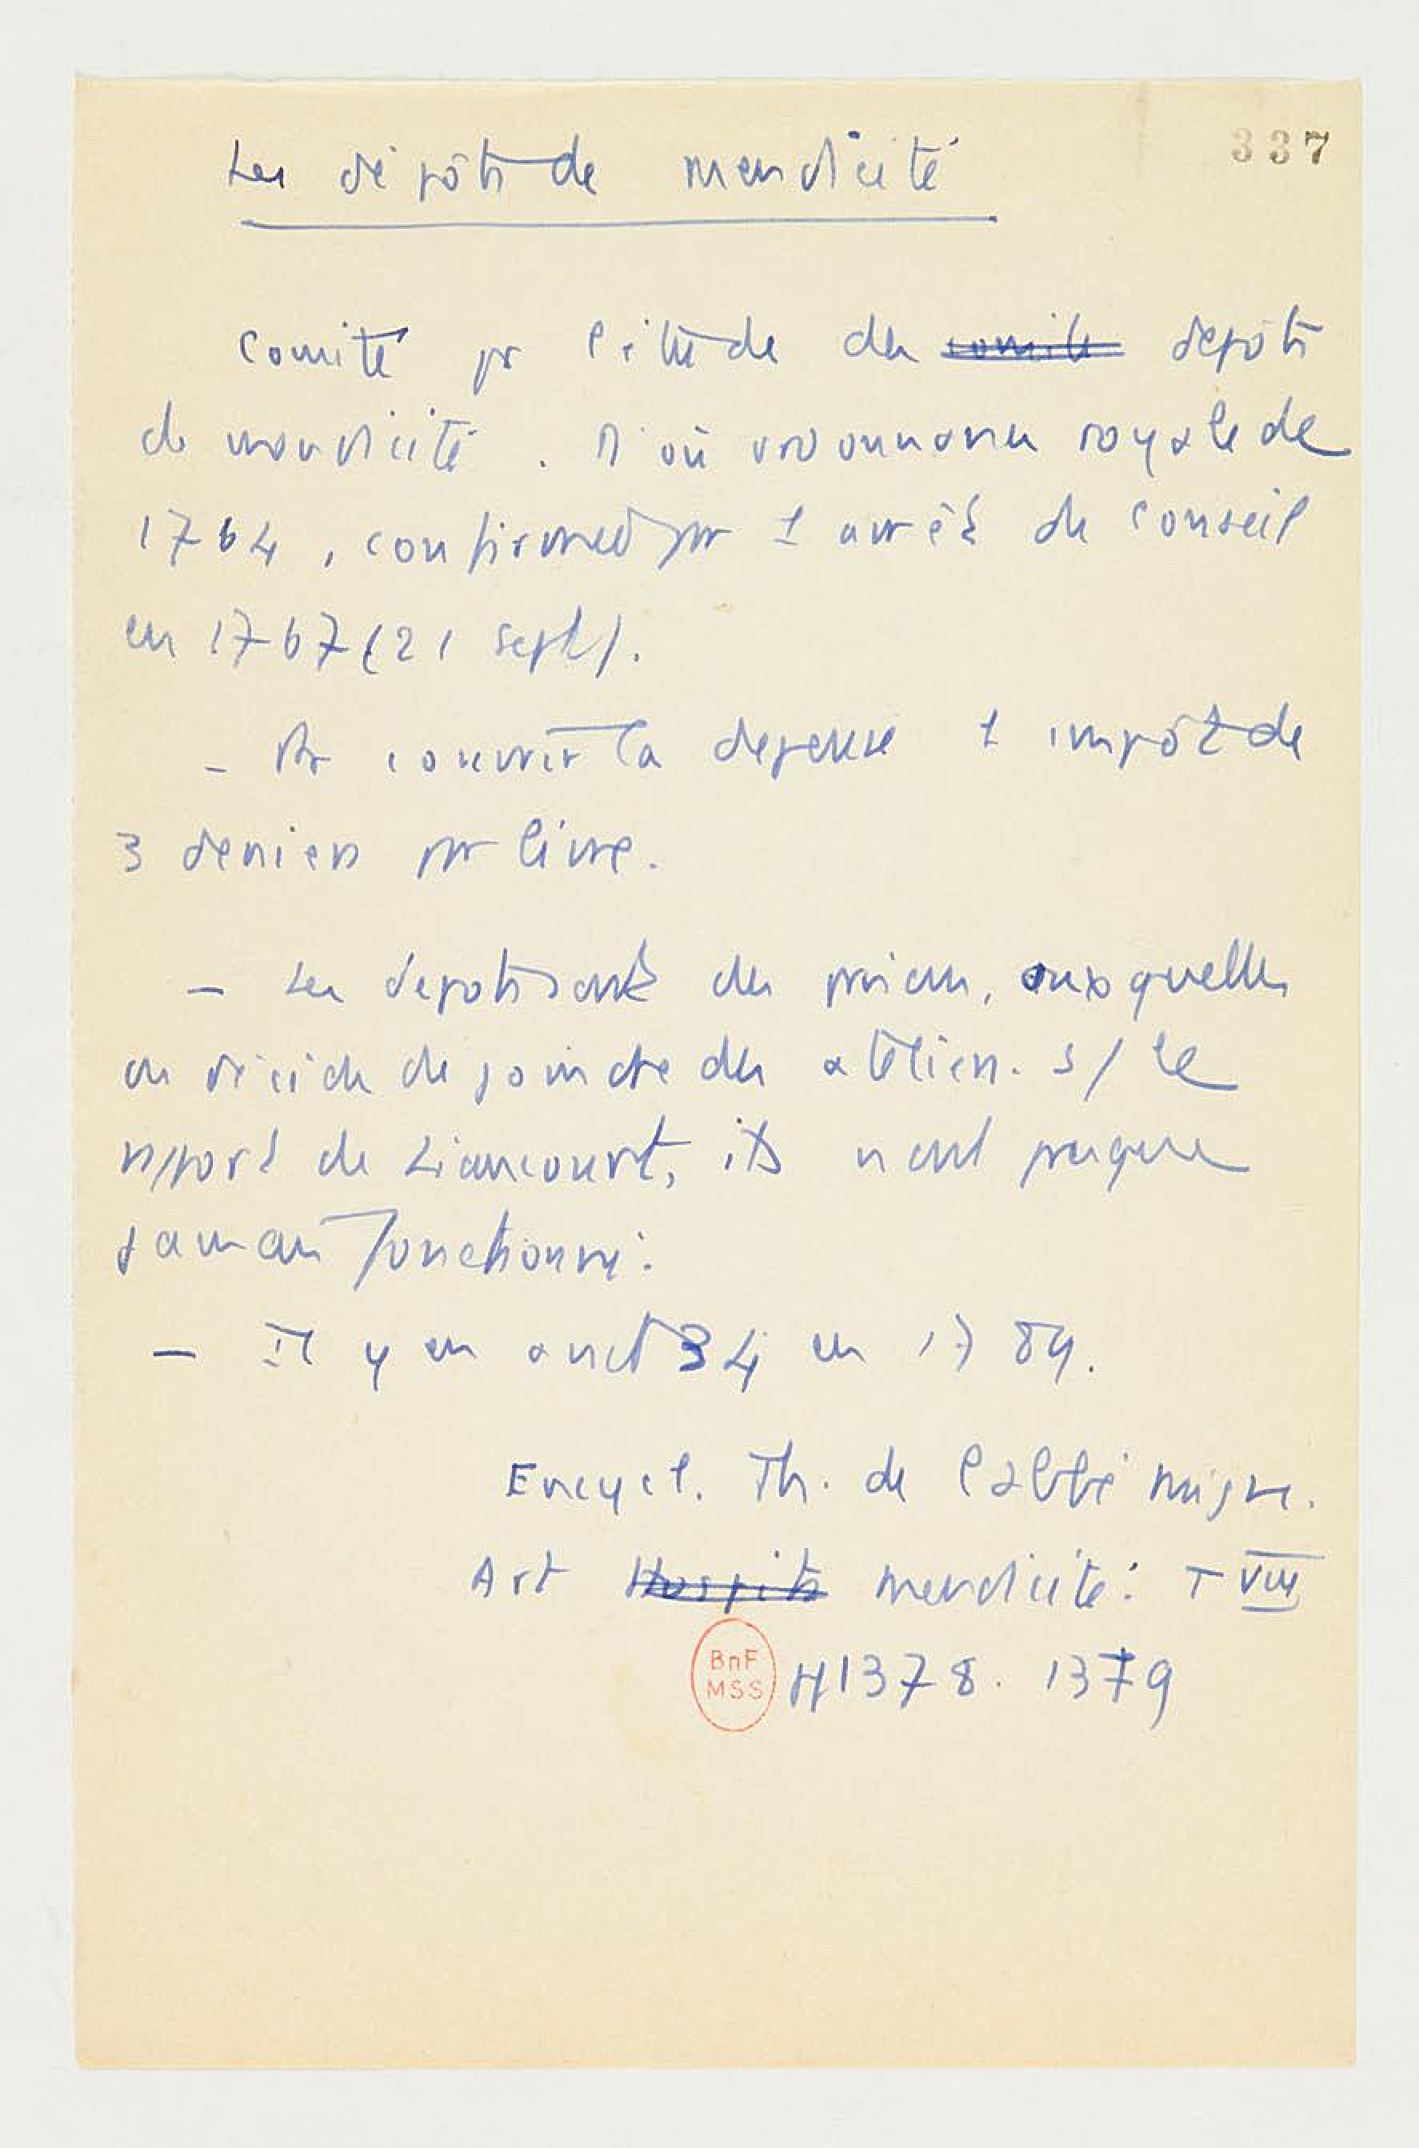 337
Les dépôts de mendicité
Comité pr l'étude des comités dépôts
de mendicité. D'où ordonnance royale de
1764, confirmed par 1 arrêt du Conseil
en 1767 (21 sept).
- Pr couvrir la depense 1 impôt de
3 deniers par livre.
- Les depots sont des prisons, auxquelles
on décide de joindre des ateliers. S/ le
rapport de Liancourt, ils n'ont presque
jamais fonctionné.
- Il y en avait 34 en 1789.
Encycl. Th. de l'abbé Migne.
Art Hospits mendicité : T VIII
BnF
MSS
1378. 1379